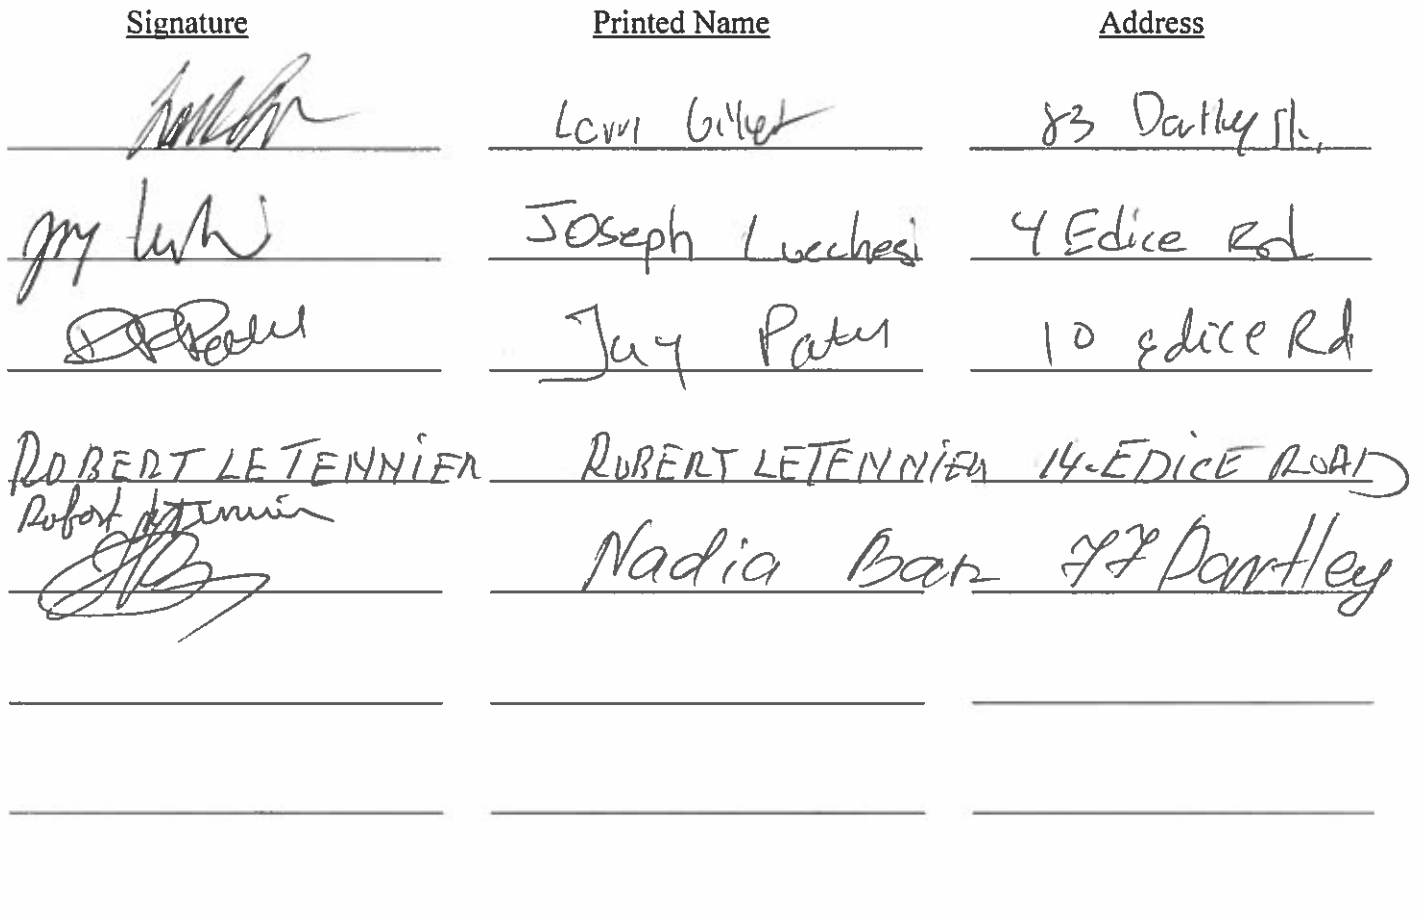 Signature Printed Name Address
Lorri Gillet 83 Dartley St.
Joseph Lucchesi 4 Edice Rd
Jay Patel 10 edice Rd
ROBERT LETENNIER ROBERT LETENNIER 14-EDICE ROAD
Robert Letennier
Nadia Ban 77 Dartley